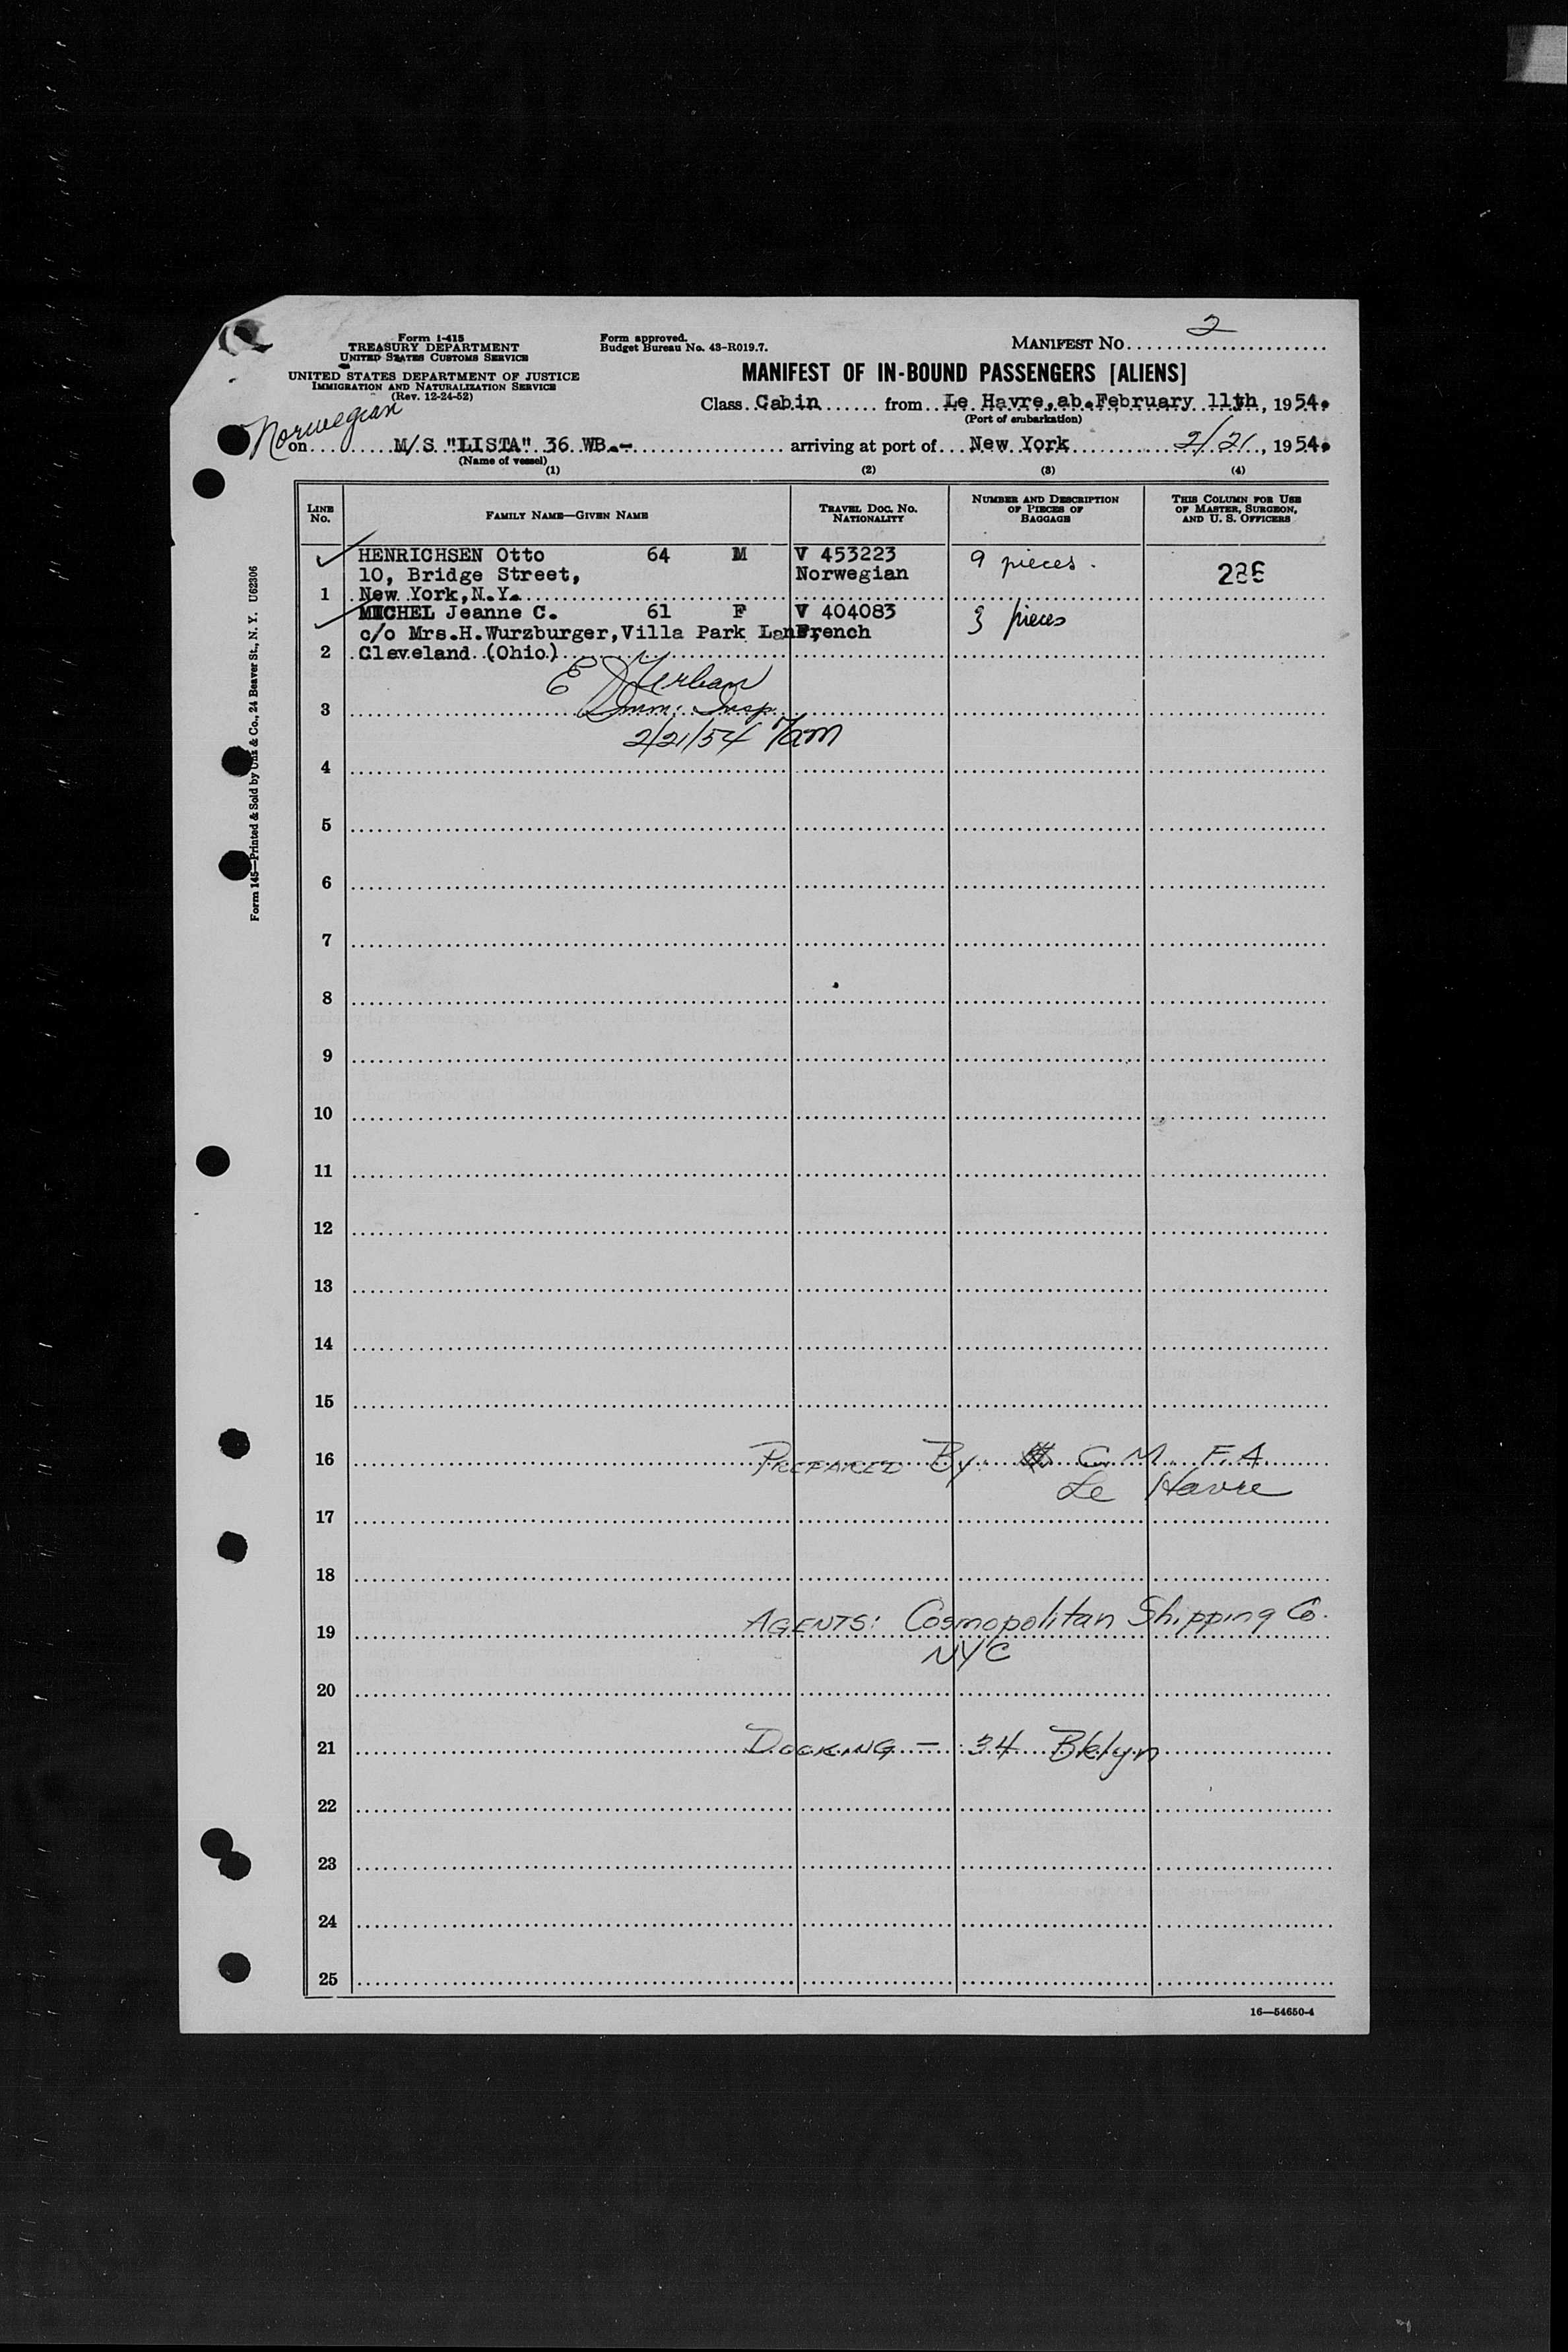 Form I-415
TREASURY DEPARTMENT
UNITED STATES CUSTOMS SERVICE
UNITED STATES DEPARTMENT OF JUSTICE
IMMIGRATION AND NATURALIZATION SERVICE
(Rev. 12-24-52)
Form approved.
Budget Bureau No. 43-R019.7.
MANIFEST NO. 2
MANIFEST OF IN-BOUND PASSENGERS [ALIENS]
Class Cabin from Le Havre, ab. February 11th, 1954.
(Port of embarkation)
Norwegian
on M/S "LISTA" 36 WB.- arriving at port of New York 2/21, 1954.
(Name of vessel)
(1) (2) (3) (4)
LINE NO. FAMILY NAME—GIVEN NAME TRAVEL DOC. NO. NATIONALITY NUMBER AND DESCRIPTION OF PIECES OF BAGGAGE THIS COLUMN FOR USE OF MASTER, SURGEON, AND U. S. OFFICERS
HENRICHSEN Otto 64 M V 453223 9 pieces.
10, Bridge Street, Norwegian 286
1 New York, N.Y.
MICHEL Jeanne C. 61 F V 404083 3 pieces
c/o Mrs.H.Wurzburger, Villa Park Lane, French
2 Cleveland (Ohio)
3 Imm. Insp.
2/21/54 7am
4
5
6
7
8
9
10
11
12
13
14
15
16 PREPARED BY C. M. F. A.
Le Havre
17
18
19 AGENTS: Cosmopolitan Shipping Co.
NYC
20
21 DOCKING — 34 Bklyn
22
23
24
25
16—54650-4
Form 145—Printed & Sold by Unz & Co., 24 Beaver St., N. Y. U62306